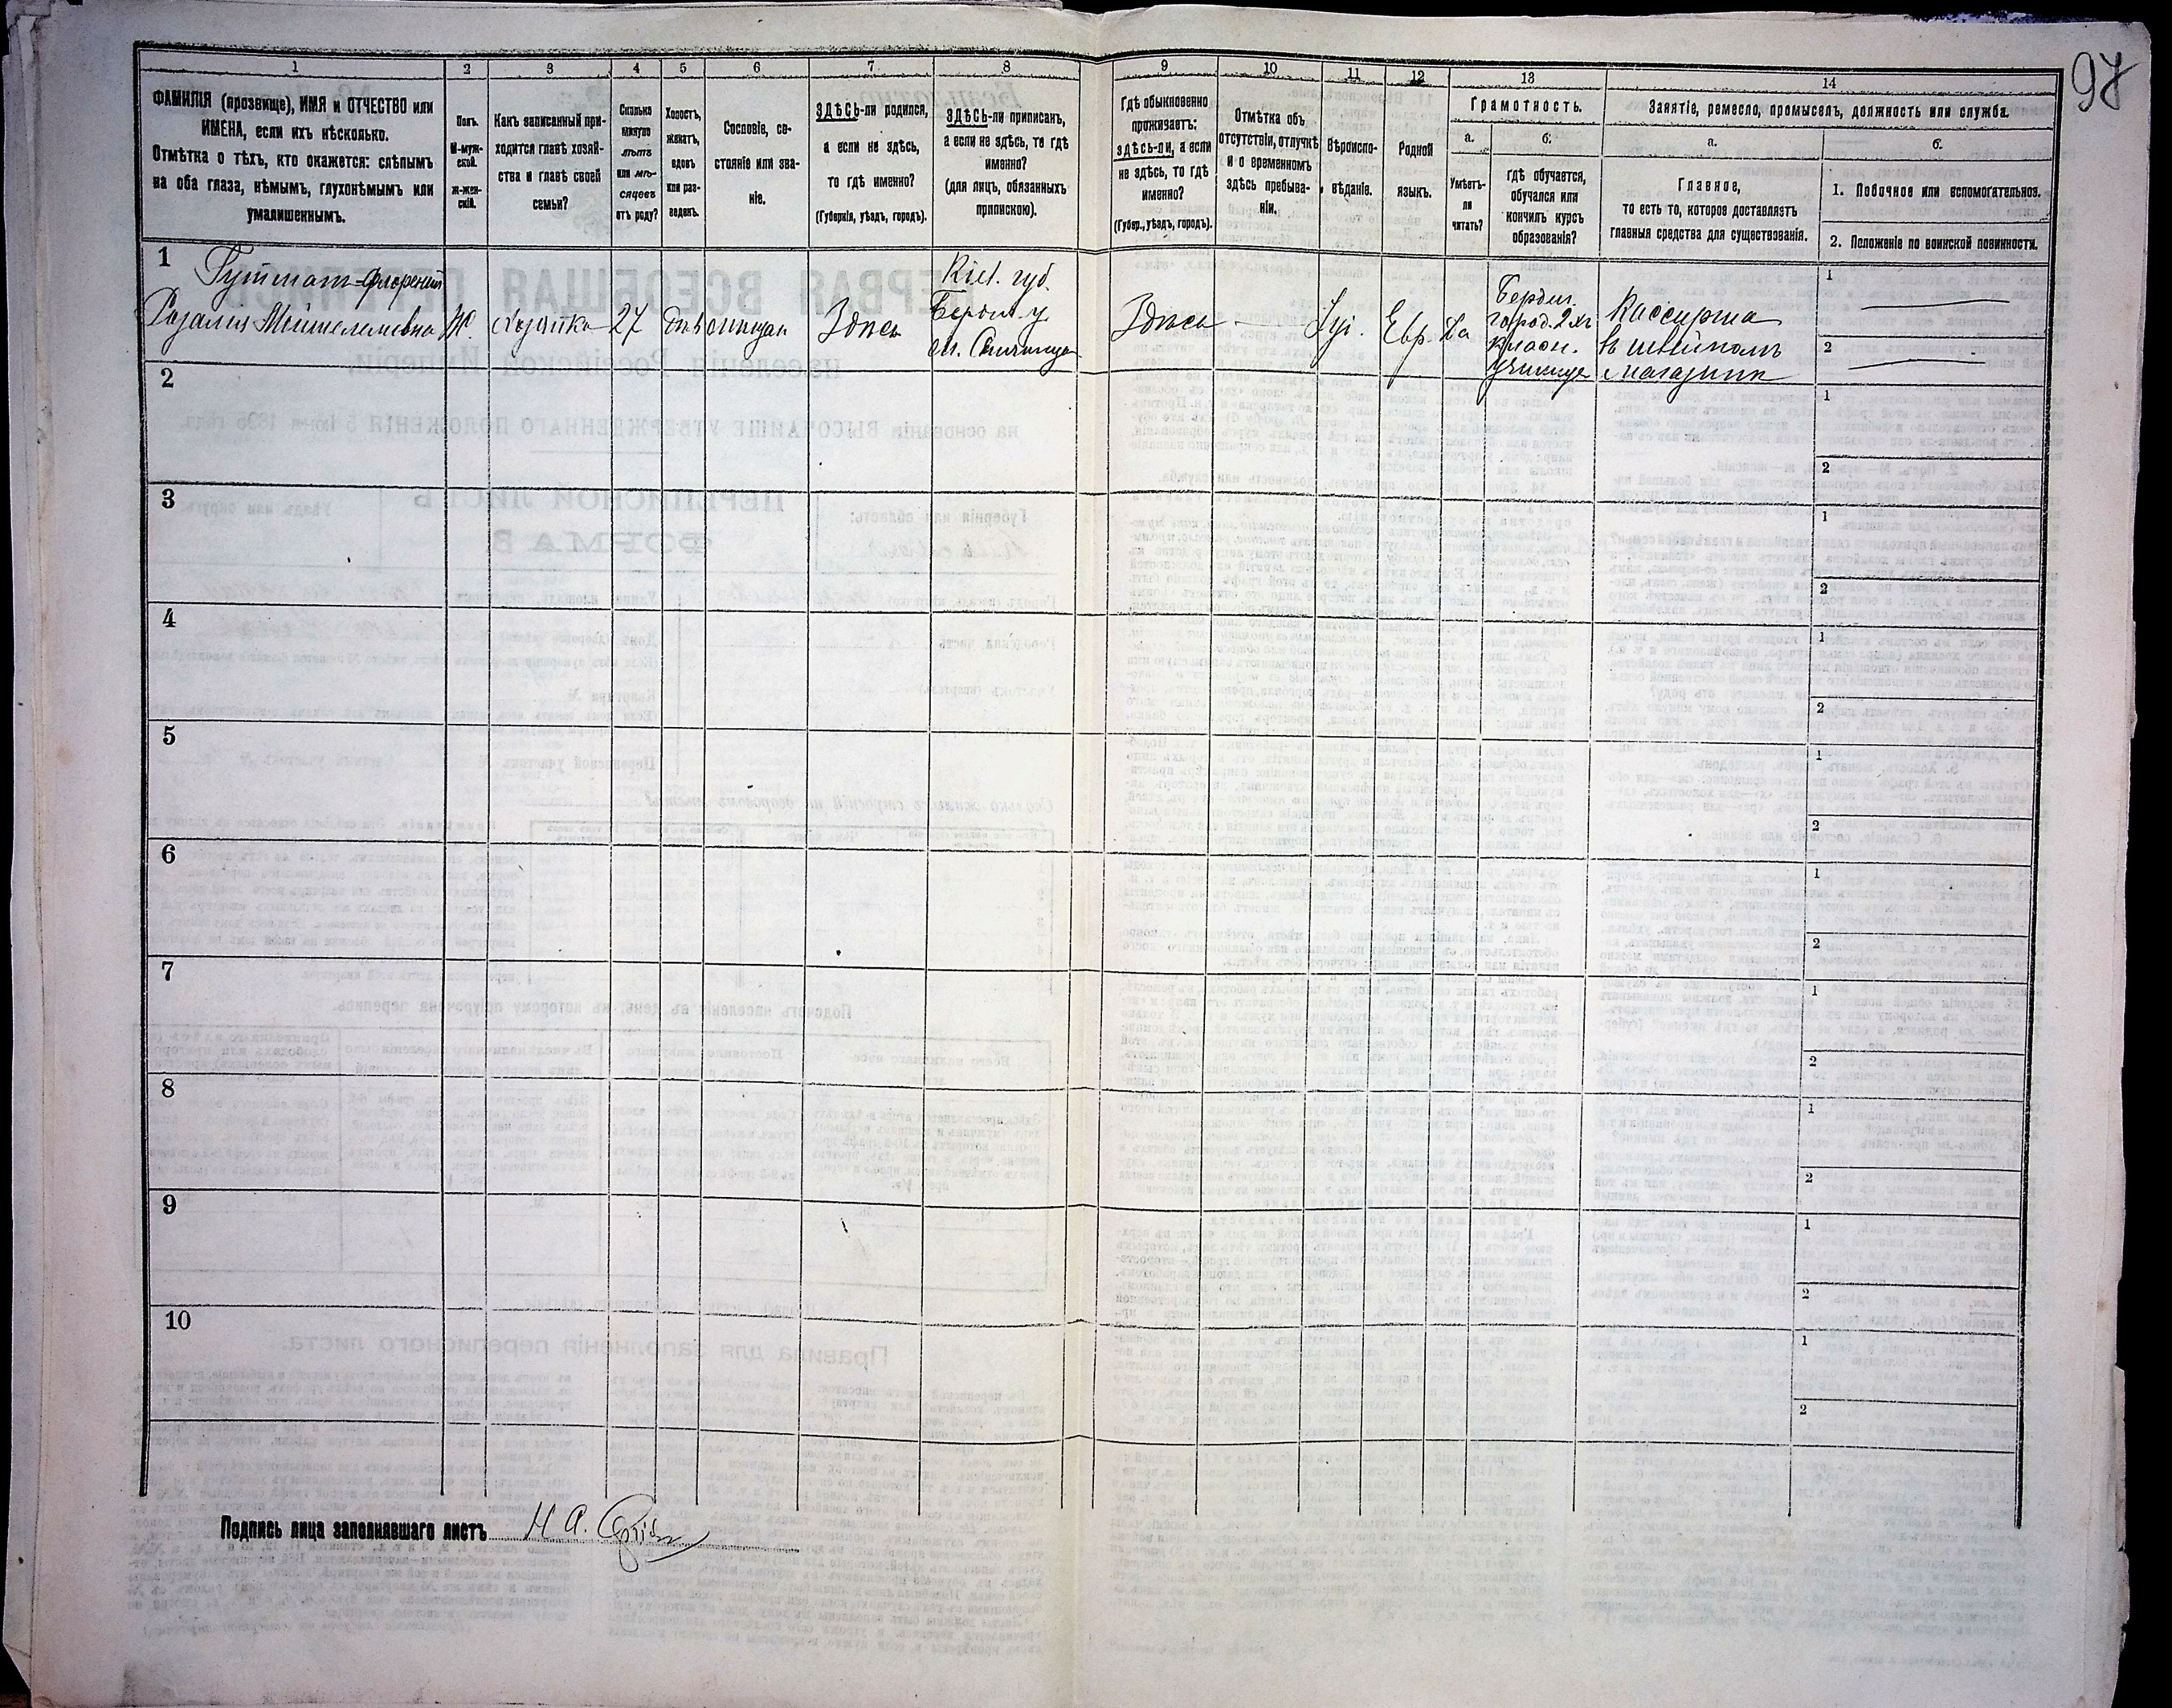 97
1
2
3
4
5
6
7
8
9
10
11
12
13
14
ФАМИЛІЯ (прозвище), ИМЯ и ОТЧЕСТВО или
ИМЕНА, если ихъ нѣсколько.
Отмѣтка о тѣхъ, кто окажется: слѣпымъ
на оба глаза, нѣмымъ, глухонѣмымъ или
умалишеннымъ.
Полъ.
М-муж-
ской.
ж-жен-
скій.
Какъ записанный при-
ходится главѣ хозяй-
ства и главѣ своей
семьи?
Сколько
минуло
лѣтъ
или мѣ-
сяцевъ
отъ роду?
Холостъ,
женатъ,
вдовъ
или раз-
веденъ.
Сословіе, со-
стояніе или зва-
ніе.
ЗДѢСЬ-ли родился,
а если не здѣсь,
то гдѣ именно?
(Губернія, уѣздъ, городъ).
ЗДѢСЬ-ли приписанъ,
а если не здѣсь, то гдѣ
именно?
(для лицъ, обязанныхъ
припискою).
Гдѣ обыкновенно
проживаетъ:
здѣсь-ли, а если
не здѣсь, то гдѣ
именно?
(Губер., уѣздъ, городъ).
Отмѣтка объ
отсутствіи, отлучкѣ
и о временномъ
здѣсь пребыва-
ніи.
Вѣроиспо-
вѣданіе.
Родной
языкъ.
Грамотность.
а.
Умѣетъ-
ли
читать?
б.
гдѣ обучается,
обучался или
кончилъ курсъ
образованія?
Занятіе, ремесло, промыселъ, должность или служба.
а.
Главное,
то есть то, которое доставляетъ
главныя средства для существованія.
б.
1. Побочное или вспомогательное.
2. Положеніе по воинской повинности.
1
Гутманъ-
Розалия
Ж.
хозяйка
27
мѣщан
Здѣсь
Кіев. губ.
Бердич. у.
м.
Здѣсь
Іуд.
Евр.
Да
Бердич.
город. 2 хъ
класн.
училище
Кассирша
въ швейномъ
магазинѣ
1
2
2
1
2
3
1
2
4
1
2
5
1
2
6
1
2
7
1
2
8
1
2
9
1
2
10
1
2
Подпись лица заполнявшаго листъ